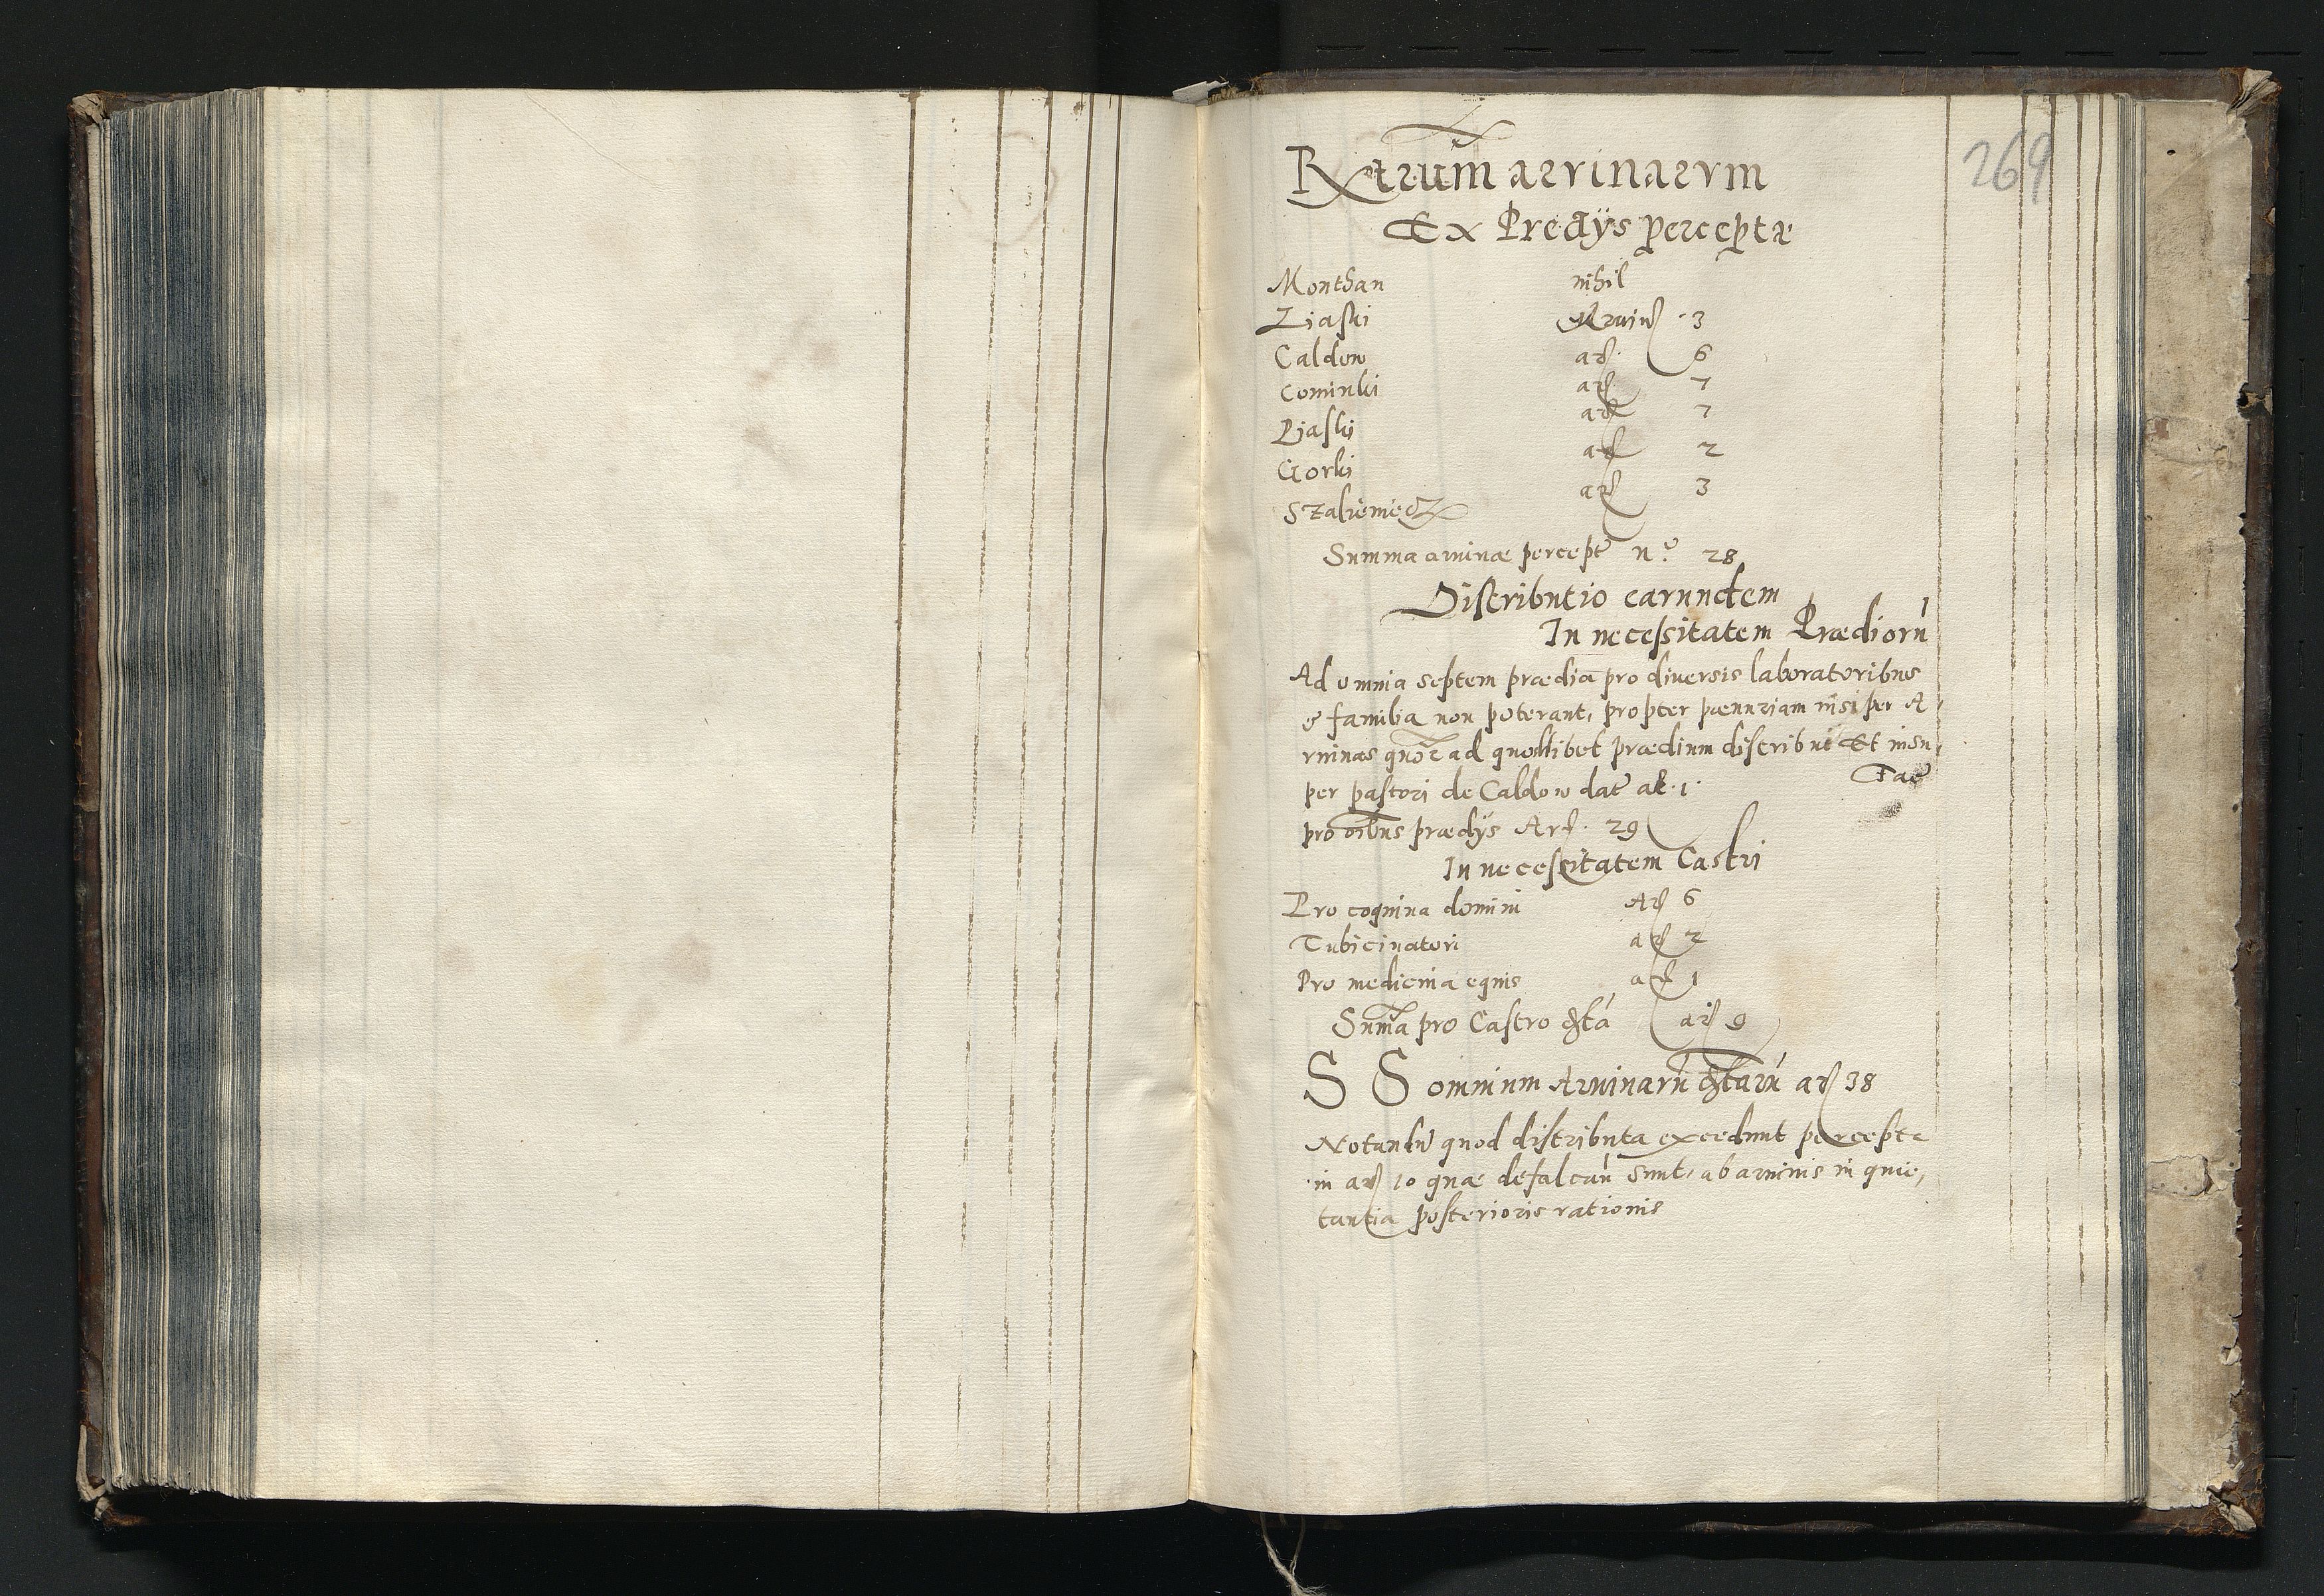 269
Rxtrum arvinarvm
Ex Predÿs perceptæ
Monthan nihil
Liaski Arvin 3
Caldow ar 6
Cominki ar 7
Piaskÿ ar 7
Gorki ar 2
Szalieniecz ar 3
Summa arvinæ percept nº 28
Distributio earundem
In necessitatem Prædiorū
Ad omnia septem prædia pro diversis laboratoribus
& familia non poterant, propter pænuriam nisi per A
rvinas quor ad quodlibet prædium distribut Et insu,
per pastori de Caldow dat ar. 1. Fac
pro oībus prædÿs Ar. 29
In necessitatem Castri
Pro coqnina domini Ar 6
Tubicinatori ar 2
Pro medicina equis ar 1
Suma pro Castro ar 9
S S omnium Arvinarū ar 38
Notandū quod distributa excedunt percepta
in ar 10 quæ defalcan sunt ab arvinis in quie,
tantia posterioris rationis